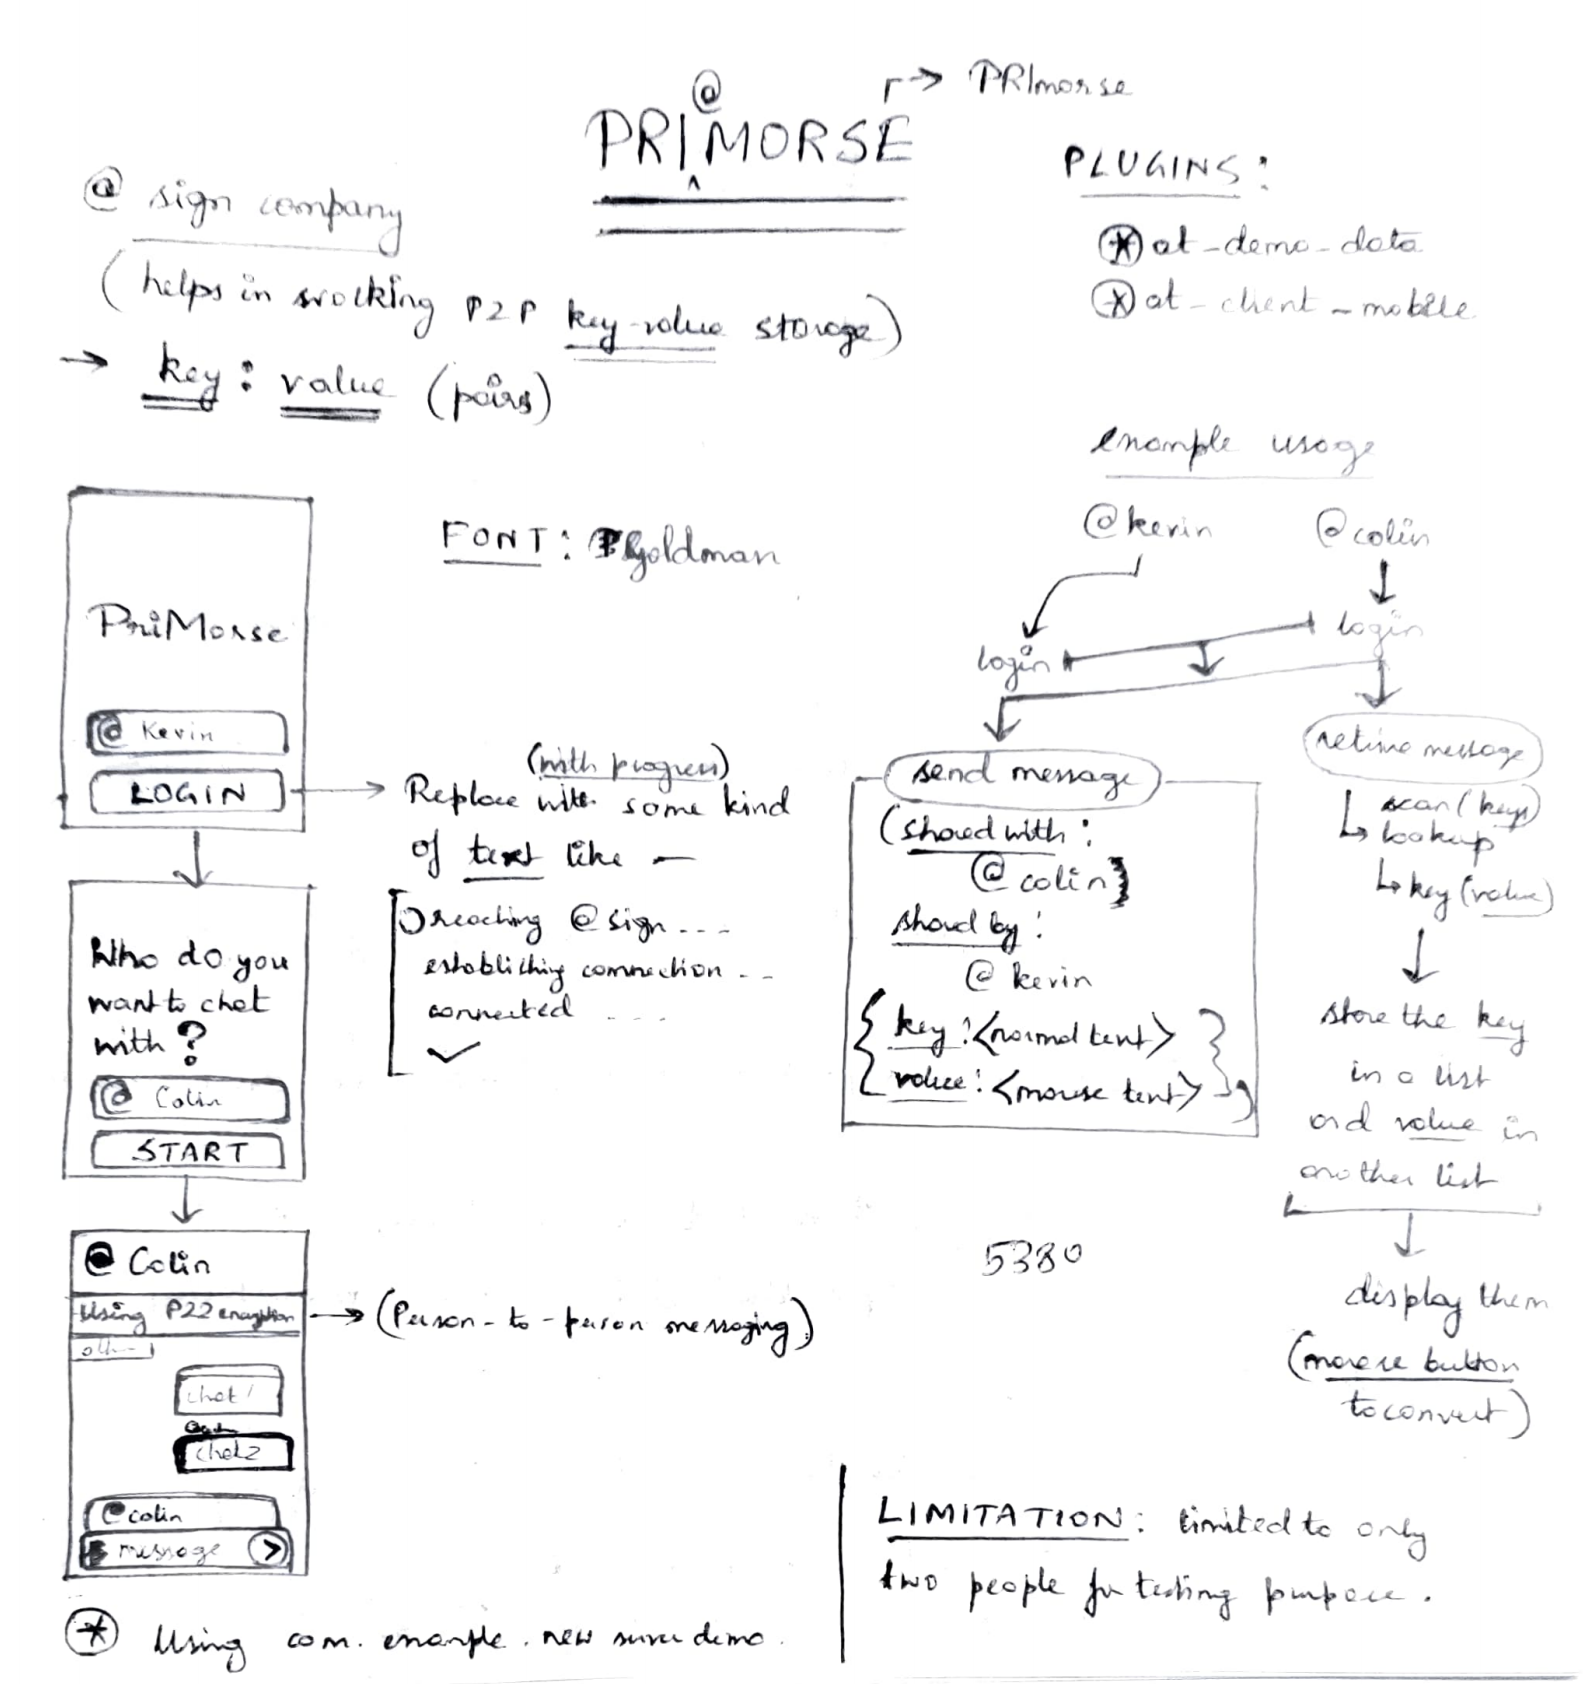 @
PRIMORSE
→ PRImorse
@ sign company
(helps in working P2P key-value storage)
→ key : value (pairs)
PLUGINS :
* at-demo-data
* at-client-mobile
FONT : Goldman
PriMorse
@ Kevin
LOGIN
(with progress)
Replace with some kind
of text like —
reaching @sign ...
establishing connection ...
connected ...
Who do you
want to chat
with ?
@ Colin
START
@ Colin
Using P22 encryption
→ (Person-to-person messaging)
chat1
chat2
@colin
message >
* Using com.example.new server demo.
example usage
@kevin
@colin
login
login
send message
(shared with :
@colin)
shared by :
@kevin
{ key : <normal text>
value : <morse text> }
retrieve message
scan (keys)
lookup
key (value)
store the key
in a list
and value in
another list
display them
(morse button
to convert)
5380
LIMITATION : limited to only
two people for testing purpose.